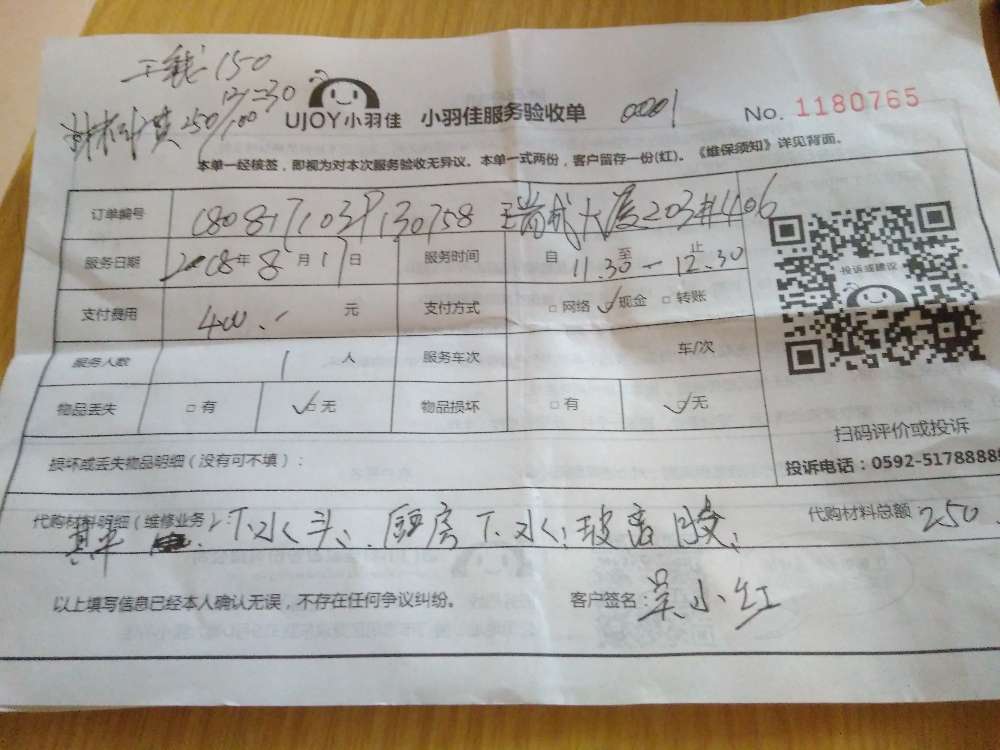 工钱150
12:30
材料费250/100
UJOY小羽佳 小羽佳服务验收单 0001 No. 1180765
本单一经核签，即视为对本次服务验收无异议。本单一式两份，客户留存一份(红)。《维保须知》详见背面。
订单编号 180817103P130758 瑞武大厦203#406
服务日期 2018年8月17日 服务时间 自 11.30 至 — 12.30 止
支付费用 400.- 元 支付方式 □网络 ☑现金 □转账
投诉或建议
服务人数 1 人 服务车次 车/次
物品丢失 □有 ☑无 物品损坏 □有 ☑无
扫码评价或投诉
损坏或丢失物品明细（没有可不填）：
投诉电话：0592-5178888
代购材料明细（维修业务）： 下水头、厨房下水，玻离胶、 代购材料总额 250
以上填写信息已经本人确认无误，不存在任何争议纠纷。 客户签名：吴小红